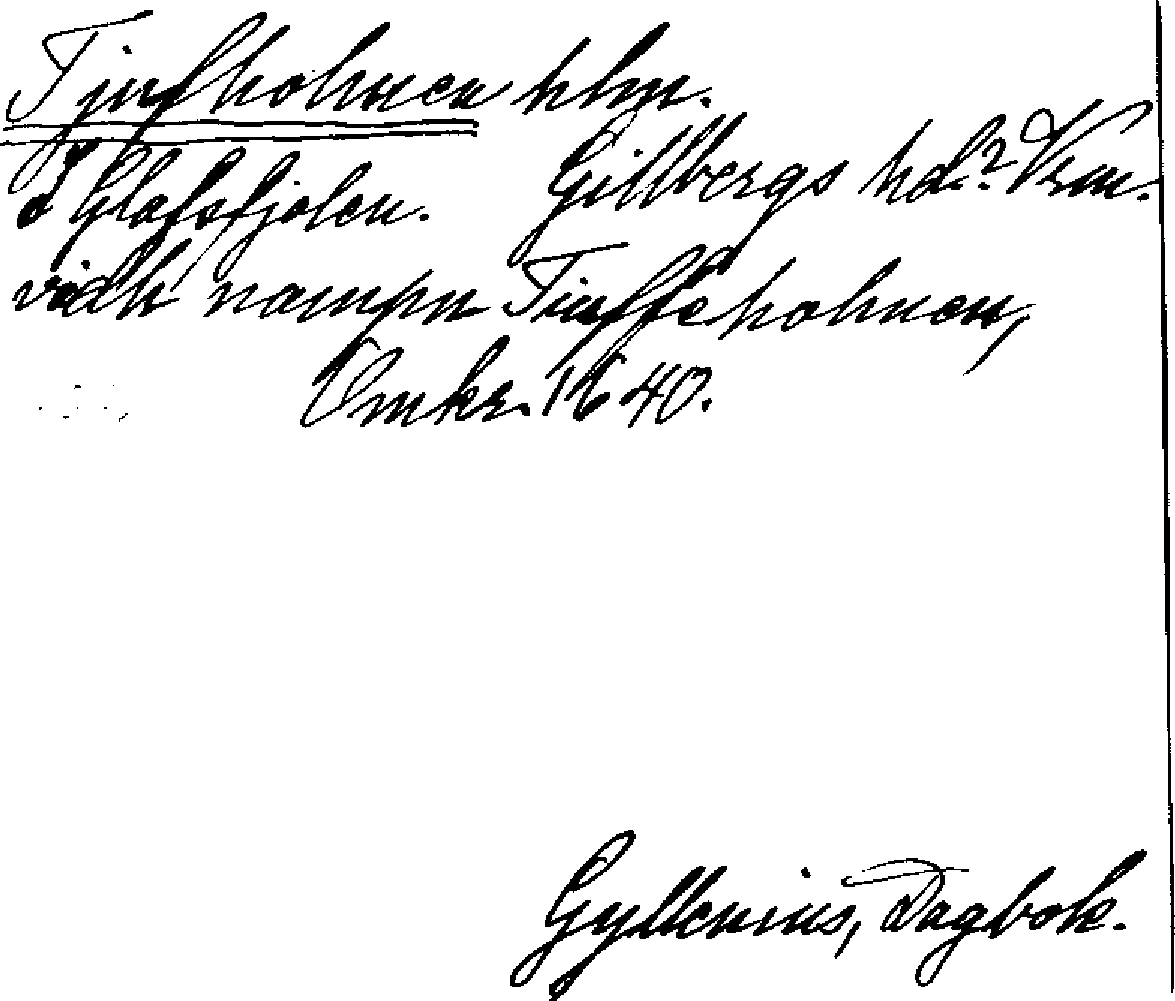 Tjufholmen hlm.
I Glafsfjolen. Gillbergs hd? Vrm.
vidh nampn Tiuffeholmen,
Omkr. 1640.
Gyllenius, Dagbok.